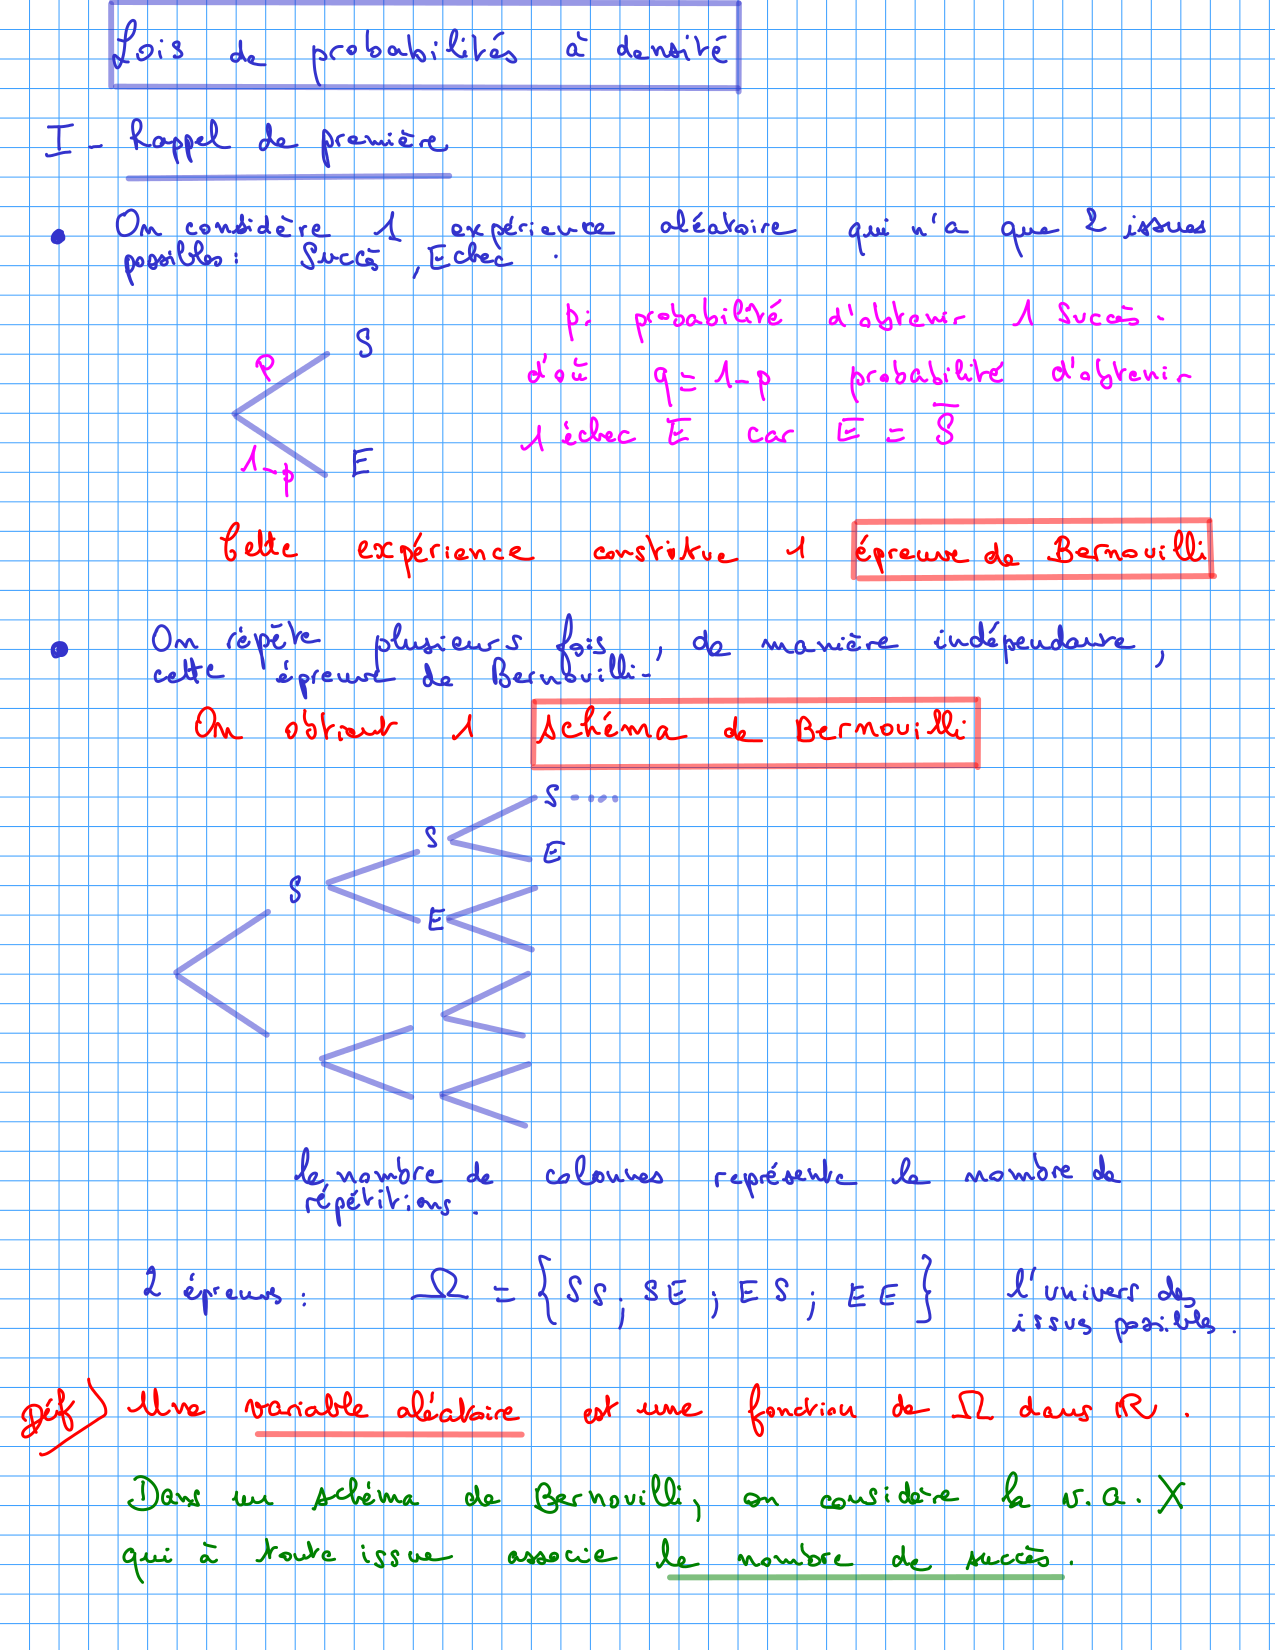 Lois de probabilités à densité
I - Rappel de première
• On considère 1 expérience aléatoire qui n'a que 2 issues
possibles : Succès , Echec .
p : probabilité d'obtenir 1 Succès .
S
p
d'où q = 1-p probabilité d'obtenir
1 échec E car E = S̅
1-p
E
Cette expérience constitue 1 épreuve de Bernouilli
• On répète plusieurs fois, de manière indépendante,
cette épreuve de Bernouilli.
On obtient 1 schéma de Bernouilli
S .....
S
E
S
E
le nombre de colonnes représente le nombre de
répétitions .
2 épreuves : Ω = { SS ; SE ; ES ; EE } l'univers des
issues possibles .
Déf) Une variable aléatoire est une fonction de Ω dans ℝ .
Dans un schéma de Bernouilli, on considère la v.a. X
qui à toute issue associe le nombre de succès .